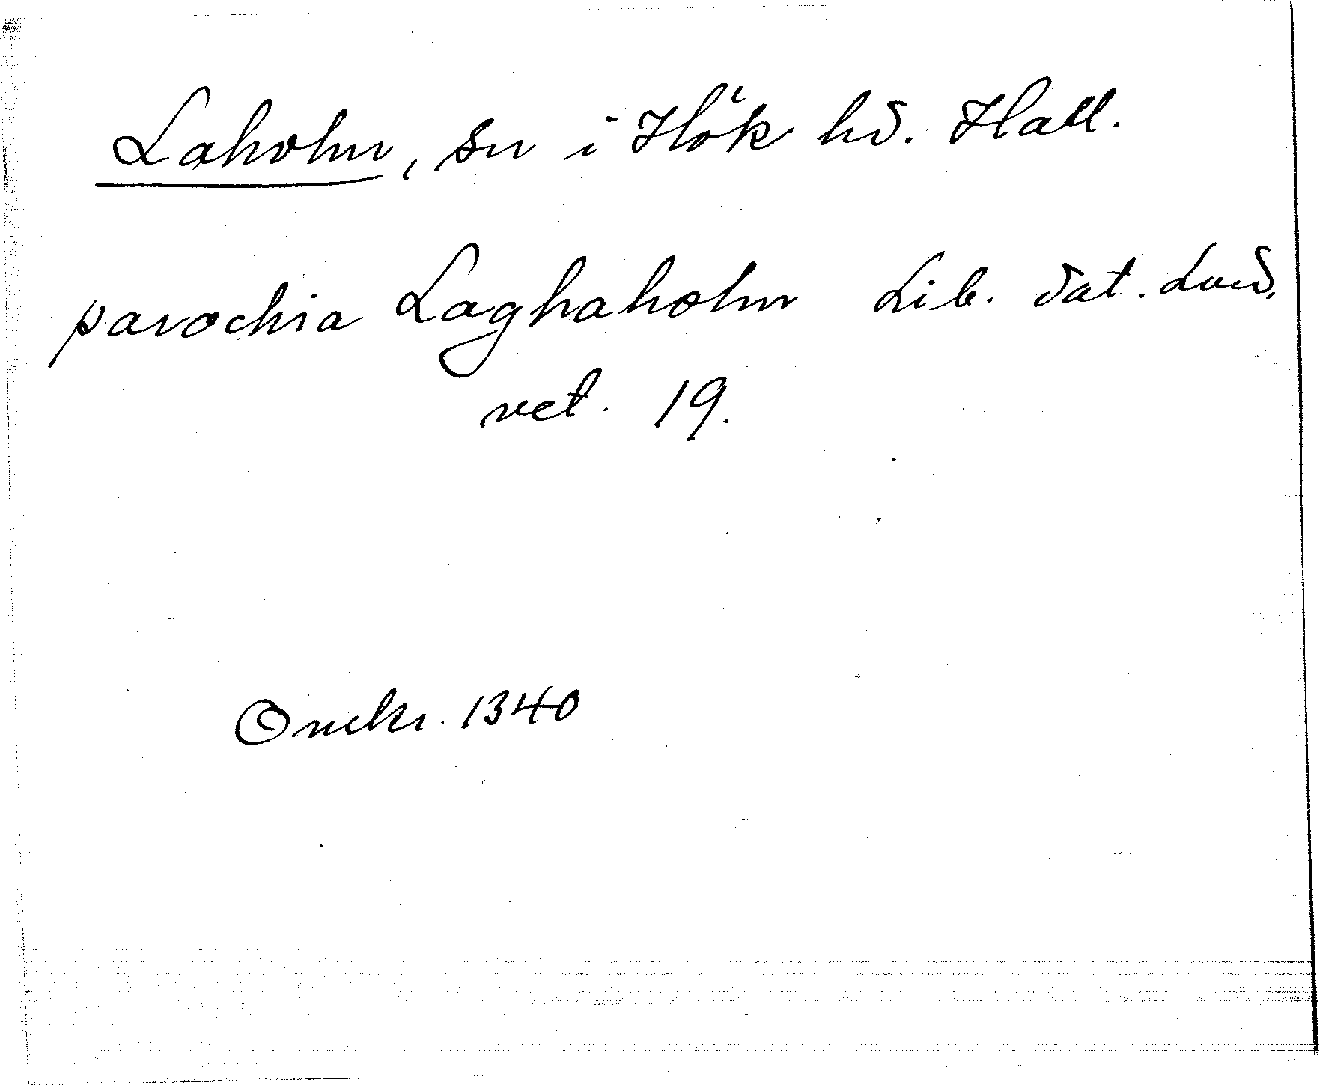 Laholm, sn i Hök hd. Hall.
parochia Laghaholm Lib. dat. Lund.
vet. 19.
Omkr. 1340